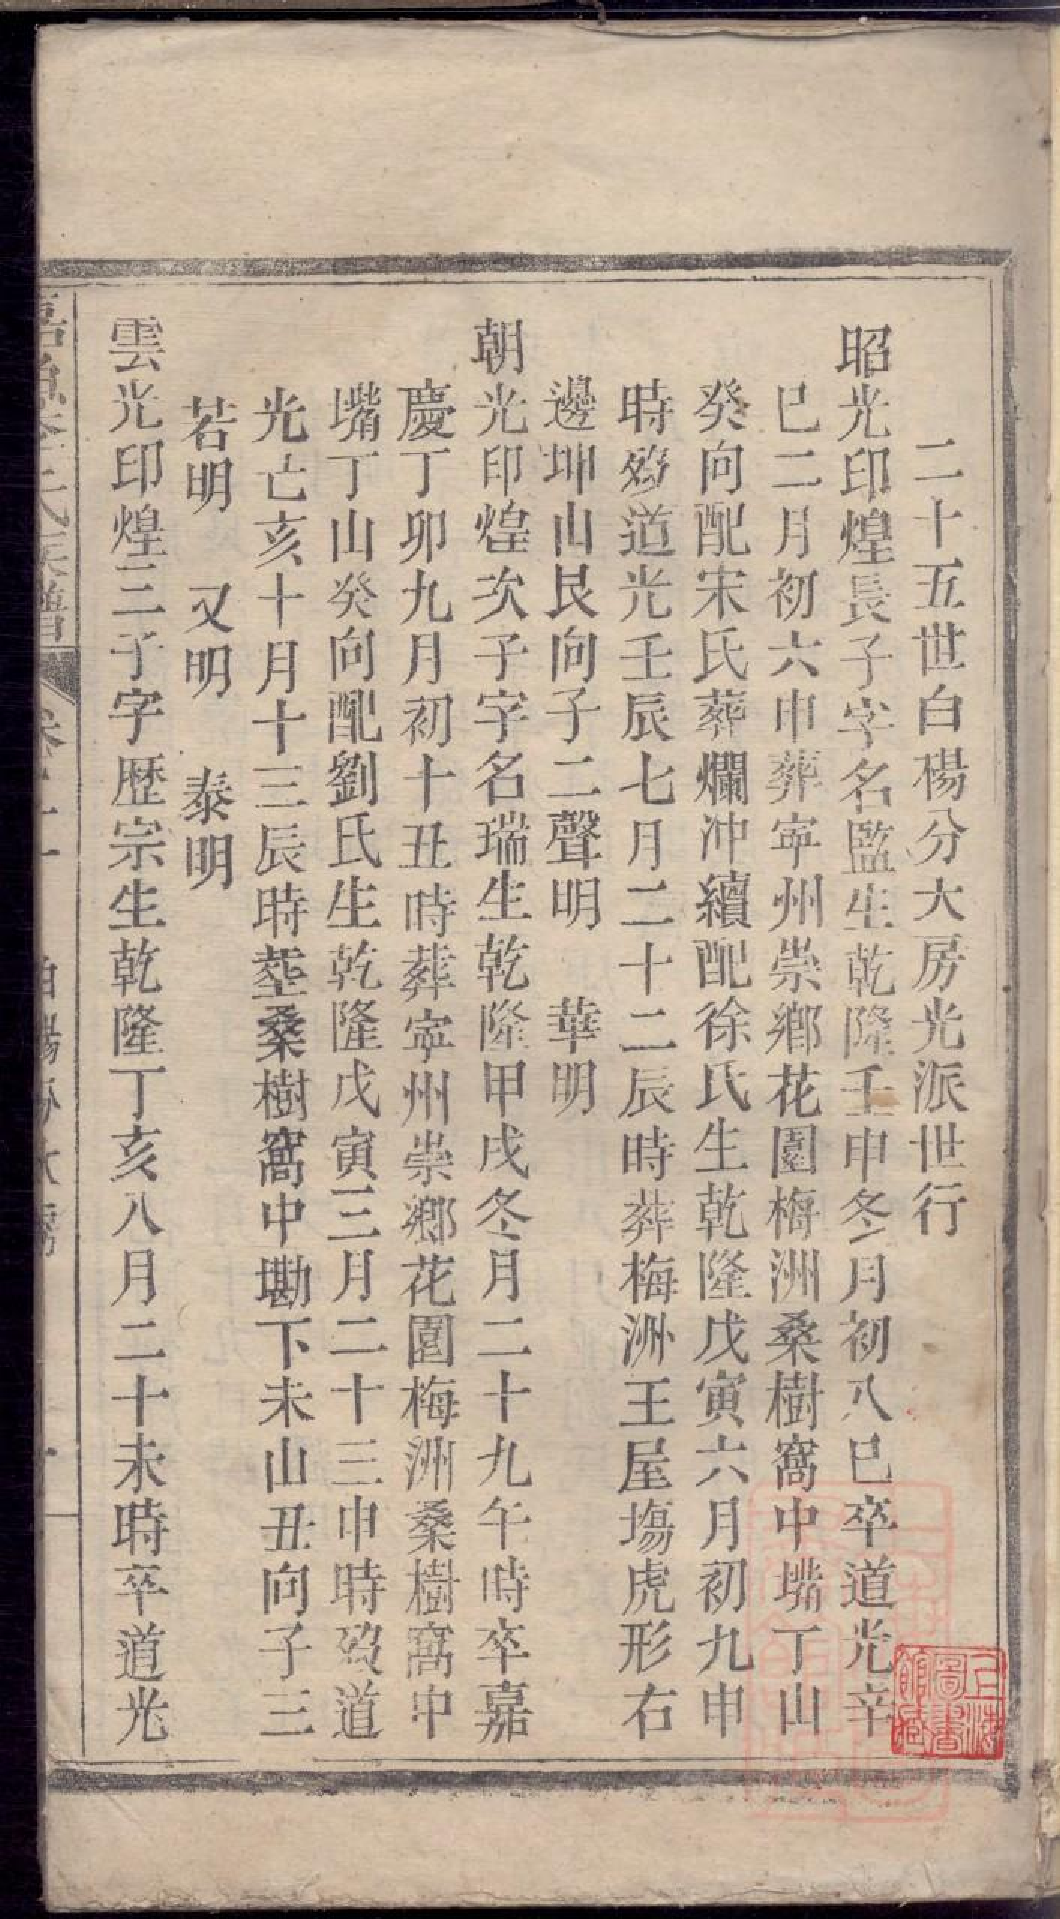 二十五世白楊分大房光派世行
昭光印煌長子字名監生乾隆壬申冬月初八巳卒道光辛
巳二月初六申葬寧州崇鄉花園梅洲桑樹窩中嘴丁山
癸向配宋氏葬爛冲續配徐氏生乾隆戊寅六月初九申
時歿道光壬辰七月二十二辰時葬梅洲王屋塲虎形右
邊坤山艮向子二聲明　華明
朝光印煌次子字名瑞生乾隆甲戌冬月二十九午時卒嘉
慶丁卯九月初十丑時葬寧州崇鄉花園梅洲桑樹窩中
嘴丁山癸向配劉氏生乾隆戊寅三月二十三申時歿道
光亡亥十月十三辰時塟桑樹窩中墈下未山丑向子三
若明　又明　泰明
雲光印煌三子字歷宗生乾隆丁亥八月二十未時卒道光
氏族譜
上海圖書館藏